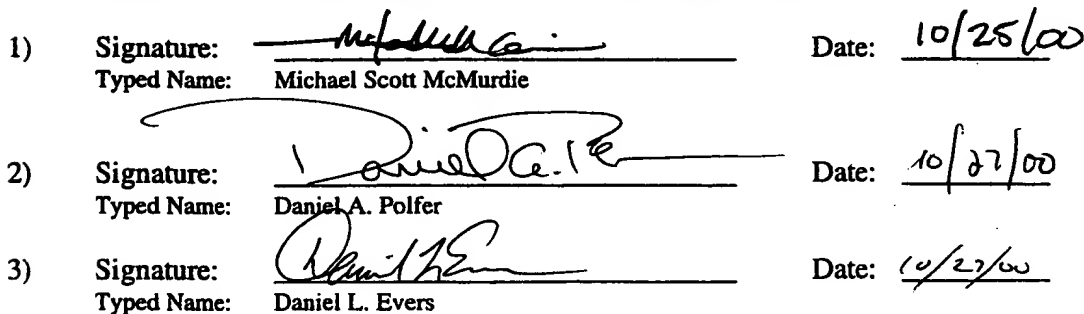 1) Signature: Date: 10/25/00
Typed Name: Michael Scott McMurdie
2) Signature: Daniel A. Date: 10/27/00
Typed Name: Daniel A. Polfer
3) Signature: Daniel L Date: 10/27/00
Typed Name: Daniel L. Evers